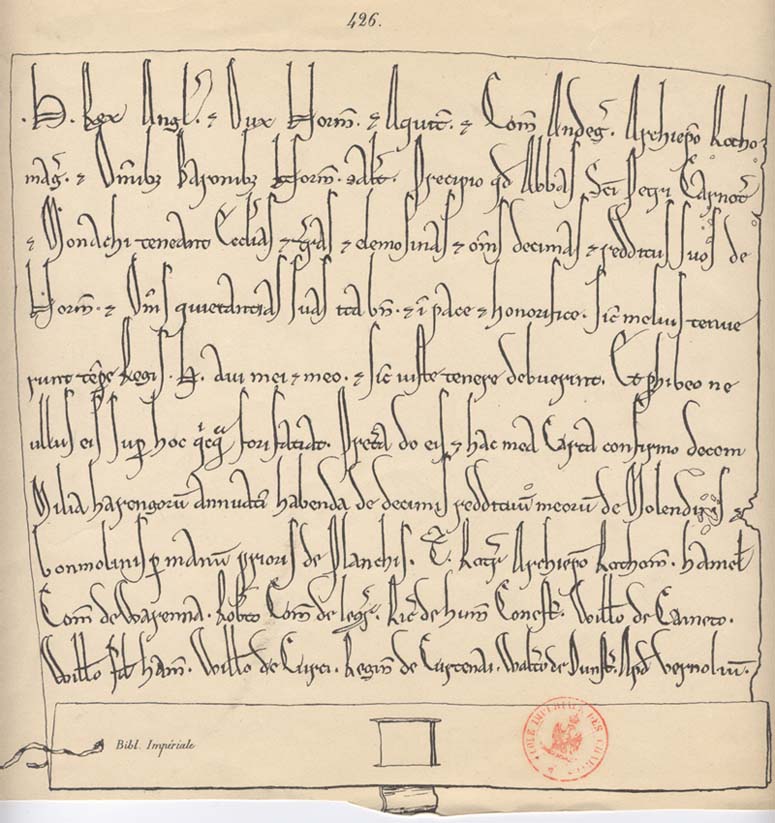 426.
.H. Rex Angl̃. & Dux Norm̃. & Aquit̃. & Com̃ Andeg̃. Archiep̃o Rotho-
mag̃. & Om̃ibꝫ Baronibꝫ Norm̃. sal̃t. Precipio qd̃ Abbas Sc̃i Petri Carnot̃
& Monachi teneant Ecc̃lias & t̃ras & elemosinas & om̃s decimas & redditus suos de
Norm̃. & Om̃s quietantias suas ita bñ. & ĩ pace & honorifice. sic̃ melius tenue
runt tẽpe Regis .H. avi mei & meo. & sic̃ iuste tenere debuerint. Et phibeo ne
ullus eis sup̃ hoc forifaciat. Pret̃a do eis & hac mea Carta confirmo decem
Milia harengorũ annuati habenda de decimis reddituũ meorũ de Molendinis &
bonmolinis p̱ manũ prioris de Planchis. T̃. Rotr̃ Archiep̃o Rothom̃. hamel̃
Com̃ de Warenna. Rob̃to Com̃ de leg̃r. Ric̃ de hum̃ Conest̃. Will̃o de Caineto.
Will̃o fil̃ ham̃. Will̃o de Curci. Regiñ de Curtenai. Walt̃o de Dunst̃. Apd̃ Vernoliũ.
Bibl. Impériale